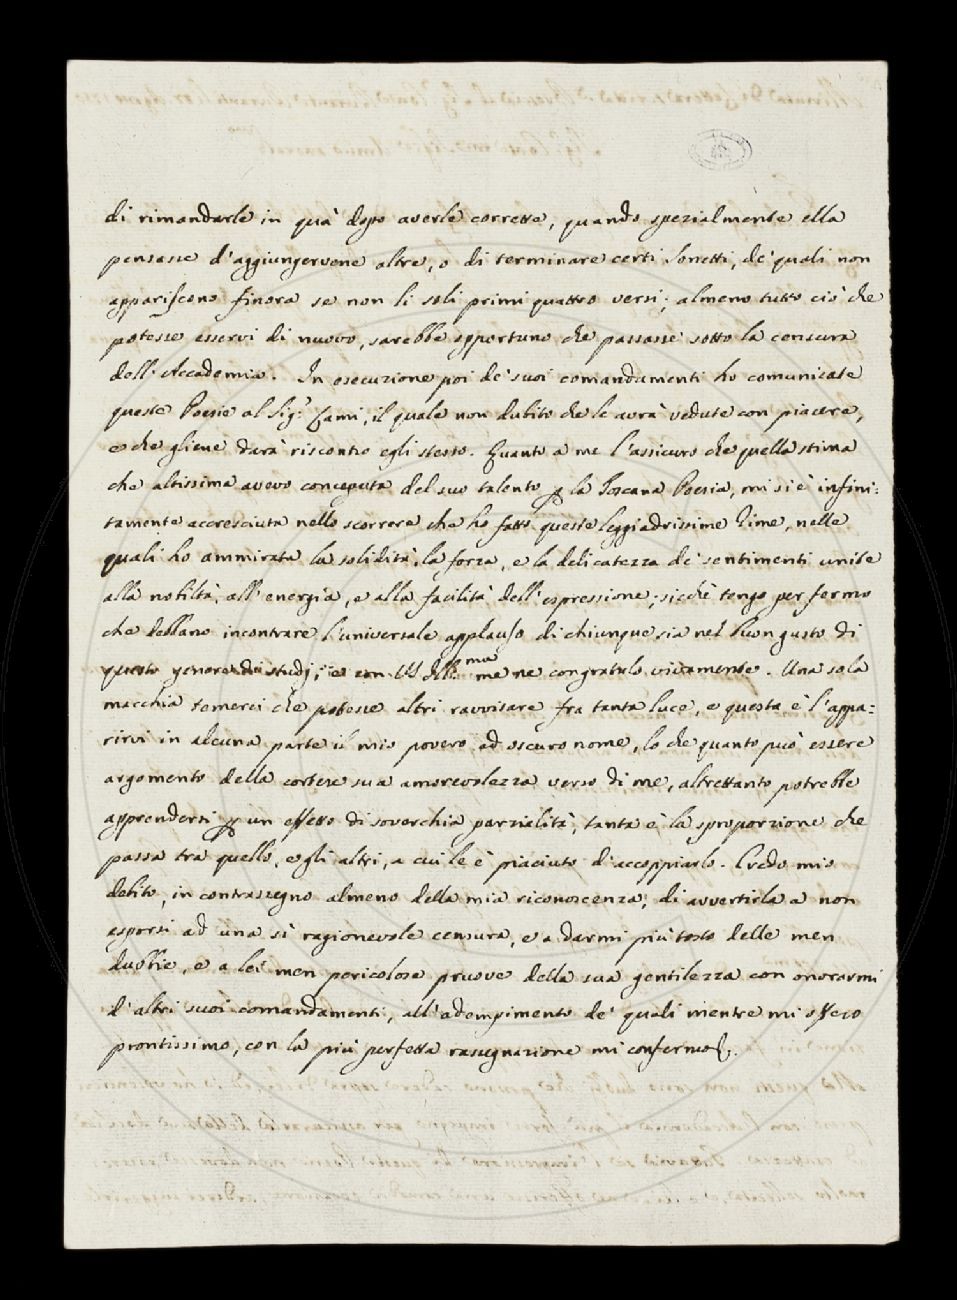 di rimandarle in quà dopo averle corrette, quando spezialmente ella
pensasse d'aggiungervene altre, o di terminare certi Sonetti, de' quali non
appariscono finora se non li soli primi quattro versi; almeno tutto ciò che
potesse esservi di nuovo, sarebbe opportuno che passasse sotto la censura
dell'Accademia. In esecuzione poi de' suoi comandamenti ho comunicate
queste Poesie al Sig.r Lami, il quale non dubito che le avrà vedute con piacere,
e che gliene darà riscontro egli stesso. Quanto a me l'assicuro che quella stima
che altissima avevo conceputa del suo talento p la Toscana Poesia, mi si è infini:
tamente accresciuta nello scorrere che ho fatto queste leggiadrissime Rime, nelle
quali ho ammirata la solidità, la forza, e la delicatezza de' sentimenti unite
alla nobiltà, all'energia, e alla facilità dell'espressione; sicchè tengo per fermo
che debbano incontrare l'universale applauso di chiunque sia nel buon gusto di
questo genere di studj; e con VS Ill:ma me ne congratulo vivamente. Una sola
macchia temerei che potesse altri ravvisare fra tanta luce, e questa è l'appa:
rirvi in alcuna parte il mio povero, ed oscuro nome, lo che quanto può essere
argomento della cortese sua amorevolezza verso di me, altrettanto potrebbe
apprendersi p un effetto di soverchia parzialità, tanta è la sproporzione che
passa tra quello, e gli altri, a cui le è piaciuto d'accoppiarlo. Credo mio
debito, in contrassegno almeno della mia riconoscenza, di avvertirla a non
esporsi ad una sì ragionevole censura, e a darmi più tosto delle men
dubbie, e a lei men pericolose pruove della sua gentilezza con onorarmi
d'altri suoi comandamenti, all'adempimento de' quali mentre mi offero
prontissimo, con la più perfetta rassegnazione mi confermo